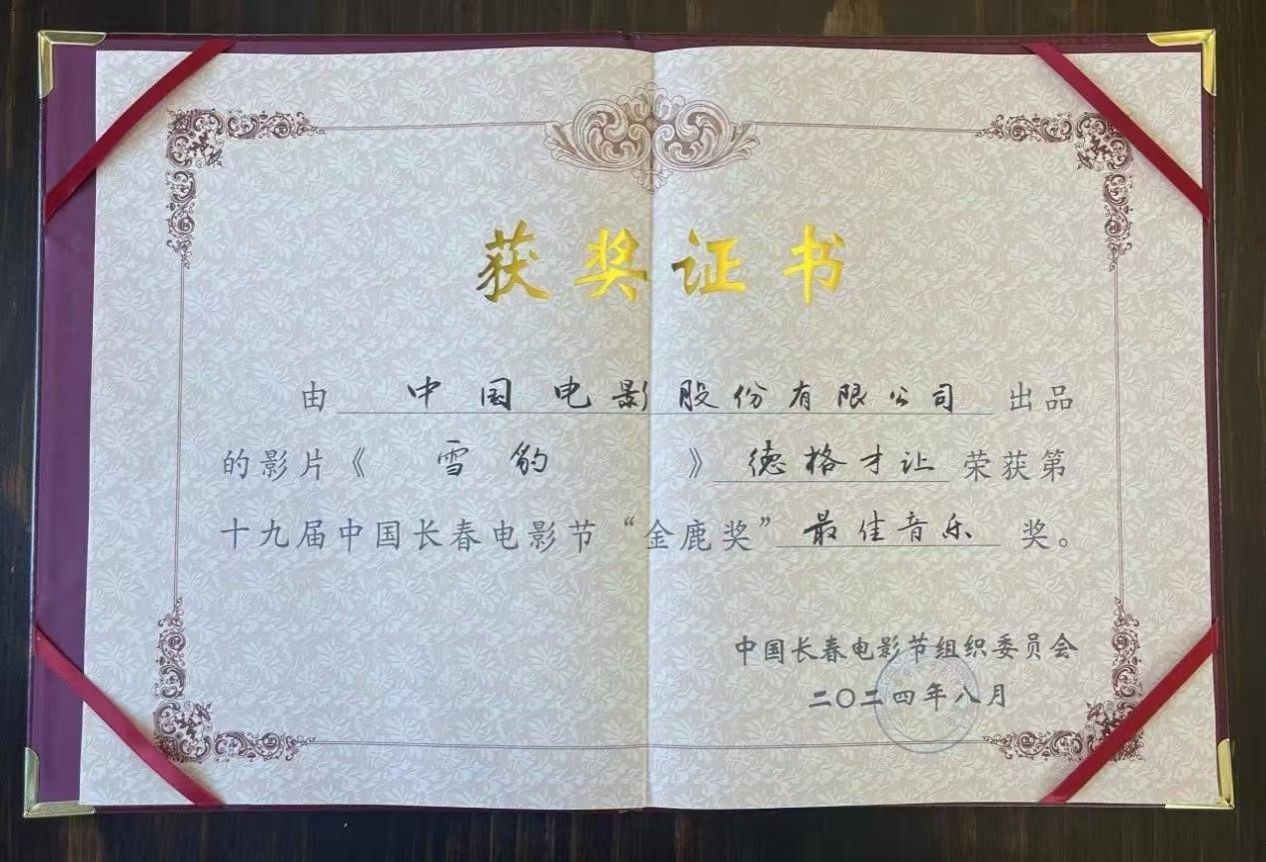 获奖证书
由 中国电影股份有限公司 出品
的影片《 雪豹 》 德格才让 荣获第
十九届中国长春电影节“金鹿奖” 最佳音乐 奖。
中国长春电影节组织委员会
二〇二四年八月